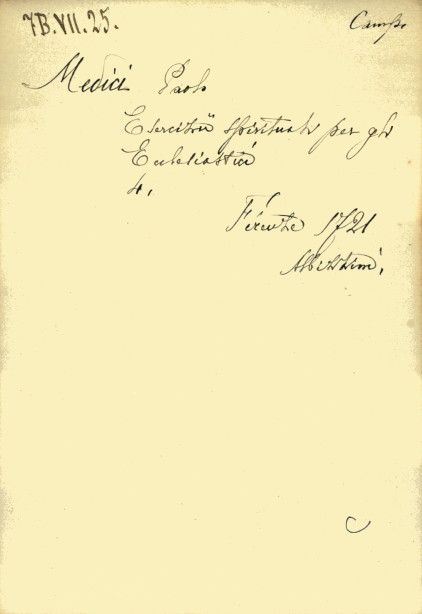 7B.VII.25.
Camp.
Medici Paolo
Esercitii spirituali per gli
Ecclesiastici
4.
Firenze 1721
Albizzini.
C